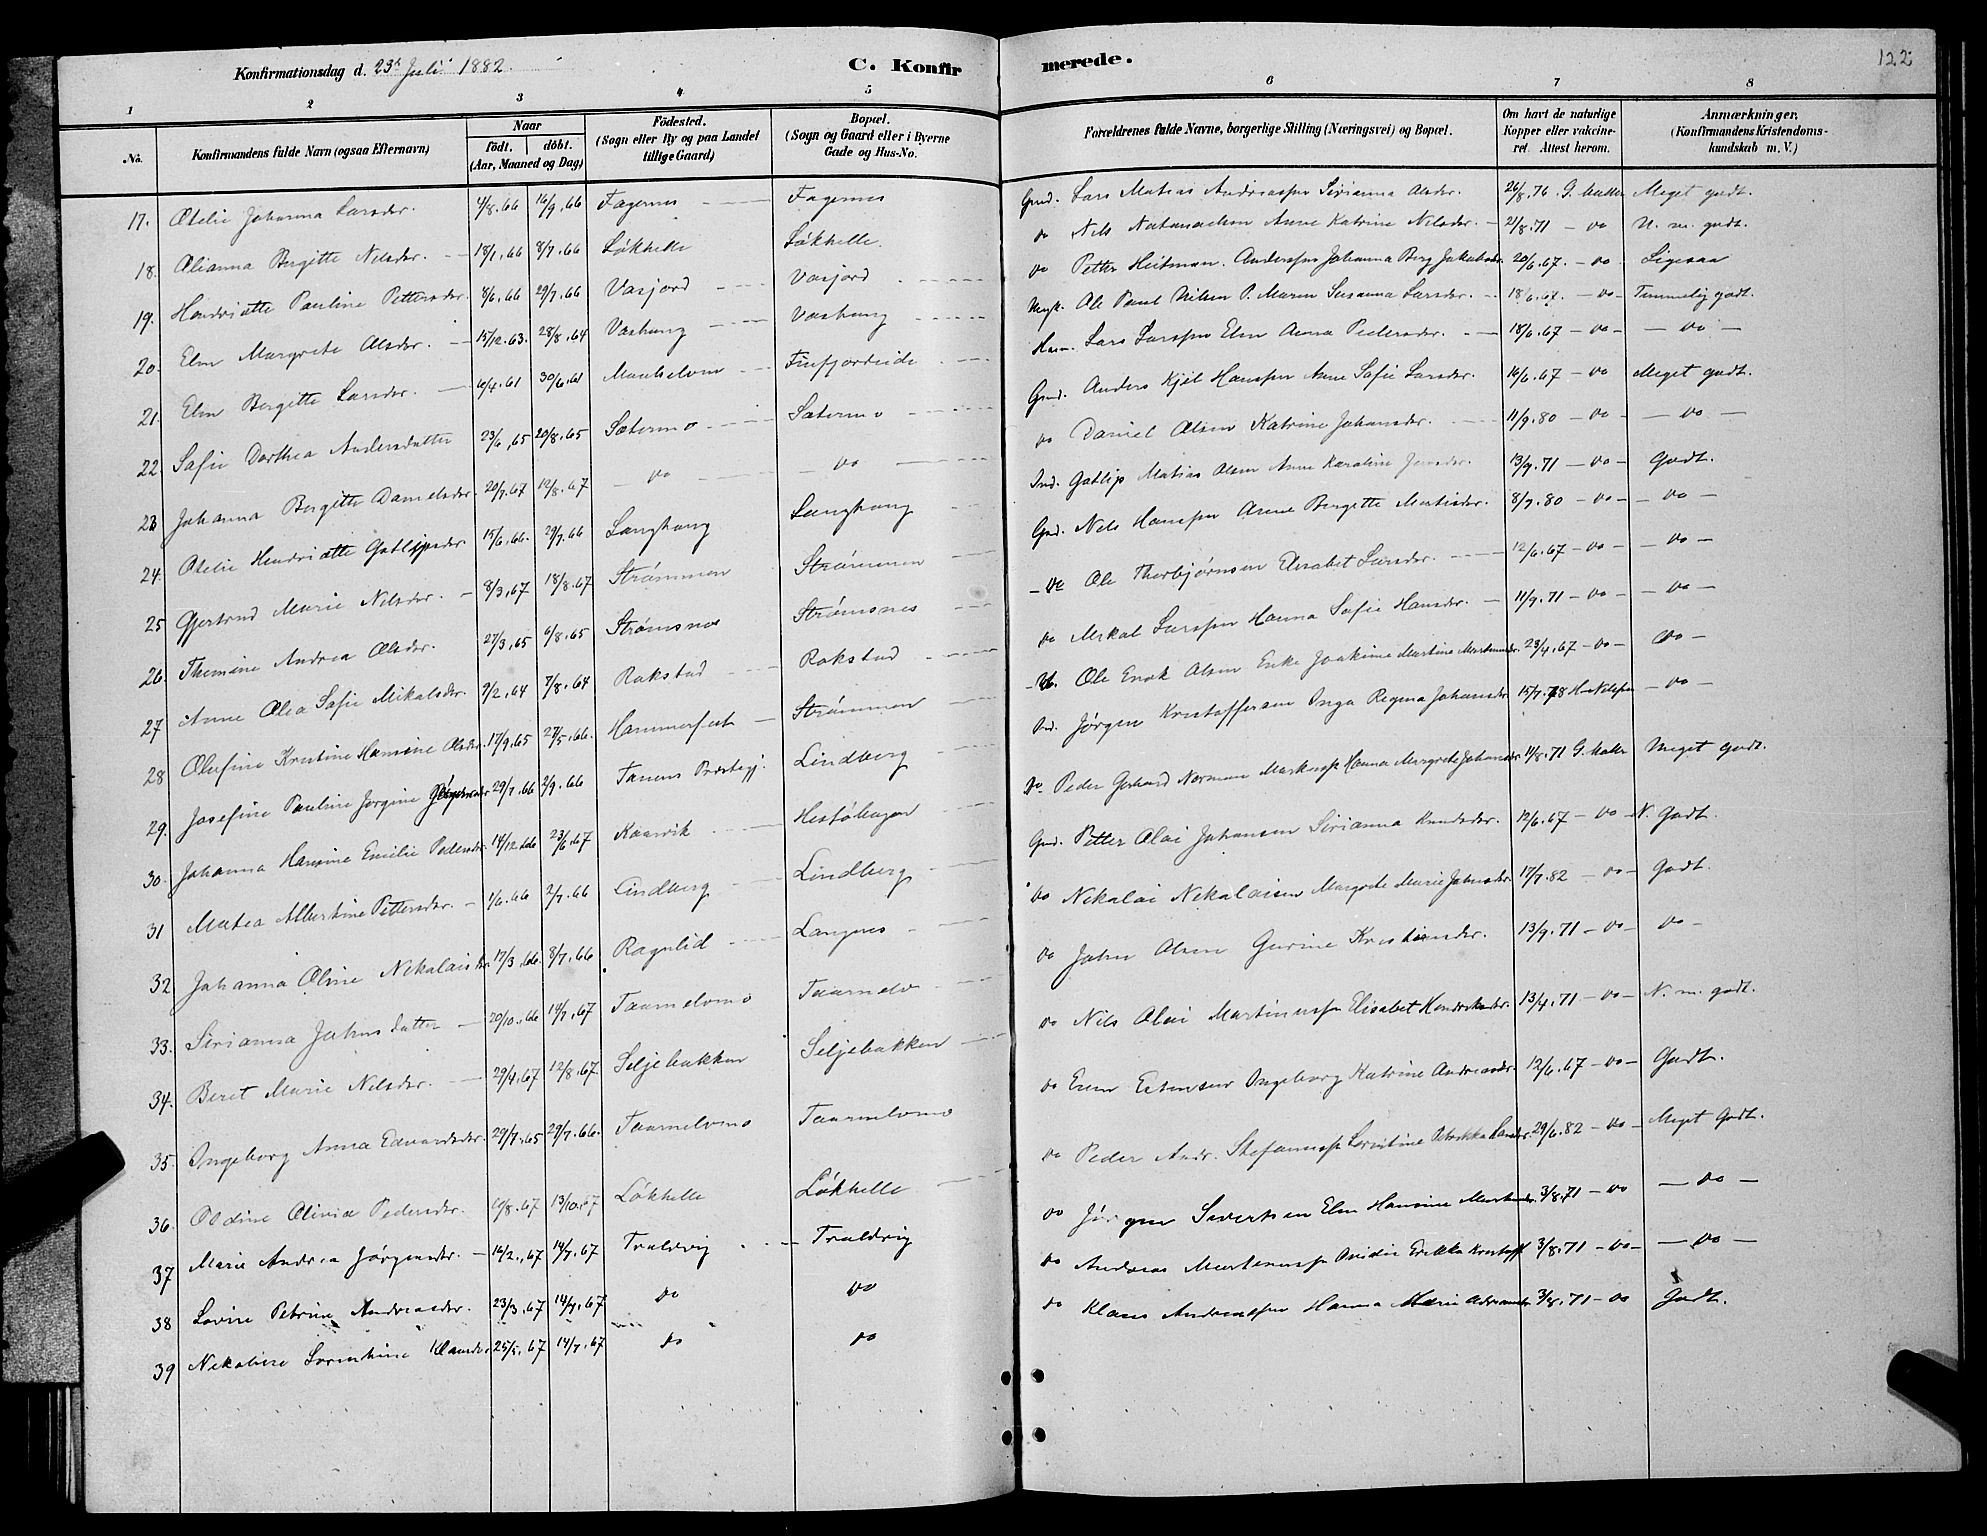 122
Konfirmationsdag d. 23d Juli 1882. C. Konfirmerede.
1 2 3 4 5 6 7 8
No. Konfirmandens fulde Navn (ogsaa Efternavn) Naar født. døbt. (Aar, Maaned og Dag) Fødested. (Sogn eller By og paa Landet tillige Gaard) Bopæl. (Sogn og Gaard eller i Byerne Gade og Hus-No. Forældrenes fulde Navne, borgerlige Stilling (Næringsvei) og Bopæl. Om havt de naturlige Kopper eller vakcineret. Attest herom. Anmærkninger. (Konfirmandens Kristendomskundskab m. V.)
17. Otelie Johanna Larsdr. 4/8.66 16/9.66 Fagernes Fagernes Gmd. Lars Matias Andreassen Sirianna Olsdr. 26/8.76 G. Meget godt.
18. Olianna Bergitte Nilsdr. 18/1.66 8/7.66 Løkhelle Løkhelle do Nils Anne Katrine Nilsdr. 21/8.71 - do N. m. godt.
19. Hendriette Pauline Pettersdr. 8/6.66 29/7.66 Vasjord Vasjord do Petter Heitman Anderssen Johanna Berg Jakobsdr. 20/6.67. - do Ligesaa
20. Elen Margrete Olsdr. 15/12.63. 28/8.64 Vashaug Vashaug Ole Paul Nilsen P. Maren Susanna Larsdr. 18/6.67. - do - Temmelig godt.
21. Elen Bergitte Larsdr. 10/4.61 30/6.61 Maaselven Finfjordeide Lars Larssen Elen Anna Pedersdr. 18/6.67 - do - - do -
22 Safie Dorthea Andersdatter 23/6.65 20/8.65 Sætermo Sætermo Gmd. Anders Kjil Hanssen Anne Safie Larsdr. 16/6.67 - do Meget godt.
23 Johanna Bergitte Danielsdr. 20/7.67 12/8.67 - do - do - do Daniel Olsen Katrine Johansdr. 11/9.80 - do - - do -
24. Otelie Hendriette Gotlipsdr. 15/6.66. 29/7.66 Langhaug Langhaug Ind. Gotlip Matias Olsen Anne Karoline Jensdr. 13/9.71 - do - Godt.
25 Gjertrud Marie Nilsdr. 8/3.67 18/8.67 Strømmen Strømmen Gmd. Nils Hanssen Anne Bergitte Mortisdr. 8/9.80 - do - - do -
26. Themine Andrea Olsdr. 27/3.65 6/8.65 Strømsnes Strømsnes - do Ole Thorbjørnsen Elisabet Larsdr. 12/6.67 - do - - do -
27 Anne Olea Safie Mikalsdr. 2/2.64 7/8.64 Rakstad Rakstad do Mikal Larssen Hanna Safie Hansdr. 11/9.71 - do - - do -
28 Olufine Kristine Hansine Olsdr. 17/9.65 27/5.66. Hammerfest Strømmen Ole Enok Olsen Enke Joakime Martine 23/4.67 - do - do -
29. Josefine Pauline Jørgine Jørgensdr 29/7.66 2/9.66 Tanens Præstegj. Lindberg Ind. Jørgen Kristoffersen Inga Regina Johansdr. 15/7.78 H. Nilssen - do -
30. Johanna Hansine Emilie Pedersdr. 14/12.66 23/6.67 Kaarvik Hestøhagen do Peder Gerhard Norman Hanna Margrete Johansdr 11/8.71 G. Meget godt.
31 Matea Albertine Pettersdr. 1/6.66 2/7.66 Lindberg Lindberg Gmd. Petter Olai Johansen Sirianna Knudsdr. 12/6.67 - do - N. Godt.
32 Johanna Oline Nikolaisdr. 17/3.66. 8/7.66 Ragnlid Langnes do Nikolai Nikolaisen Margrete Marie Johnsdr 17/7.82 - do - Godt.
33. Sirianna Johnsdatter 20/10.66 14/7.67 Taarnelvmo Taarnelv do John Olsen Gurine Kristiansdr. 13/9.71 - do - do -
34. Beret Marie Nilsdr. 29/4.67 12/8.67 Seljebakken Seljebakken do Nils Olai Martinussen Elisabet 13/4.71 - do - N. m. godt.
35. Ingeborg Anna Edvardsdr. 29/7.65 29/7.66. Taarnelvmo Taarnelvmo do Ingeborg Katrine Andreasdr. 12/6.67 - do - Godt.
36. Oldine Olivia Pedersdr. 12/8.67 13/10.67 Løkhelle Løkhelle do Peder Andr. Stefanussen Larsdr. 29/6.82 - do - Meget Godt.
37 Marie Andrea Jørgensdr. 16/2.67 14/7.67 Traldvig Traldvig do Jørgen Sivertsen Elen Hansine 3/8.71 - do - do -
38 Lovise Petrine Andreasdr. 23/3.67 14/7.67 do do do Andreas Martinussen Erikka 3/8.71 - do - - do -
39 Nikoline Klausdr 25/5.67 14/7.67 do do do Klaus Andreassen Hanna Marie 3/8.71 - do Godt.